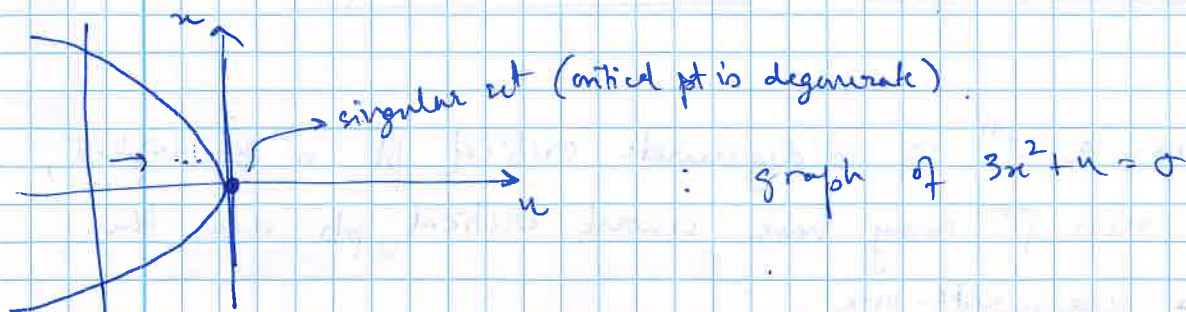 x
singular set (critical pt is degenerate).
: graph of 3x² + u = 0
u